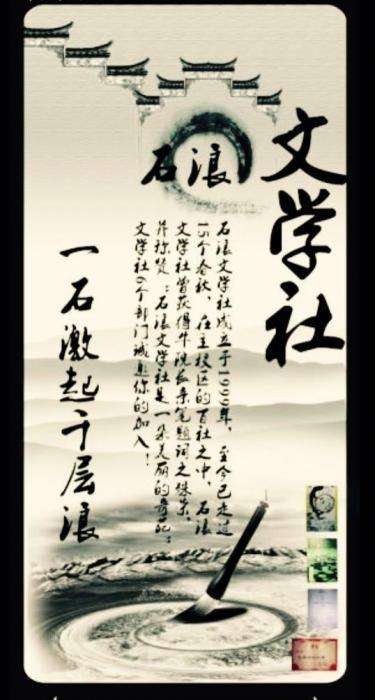 石浪
文学社
石浪文学社成立于1999年，至今已走过
15个春秋，在主校区的百社之中，石浪
文学社曾获得牛院长亲笔题词之殊荣，
并称赞：石浪文学社是一朵美丽的奇葩；
文学社6个部门诚邀你的加入！
一石激起千层浪